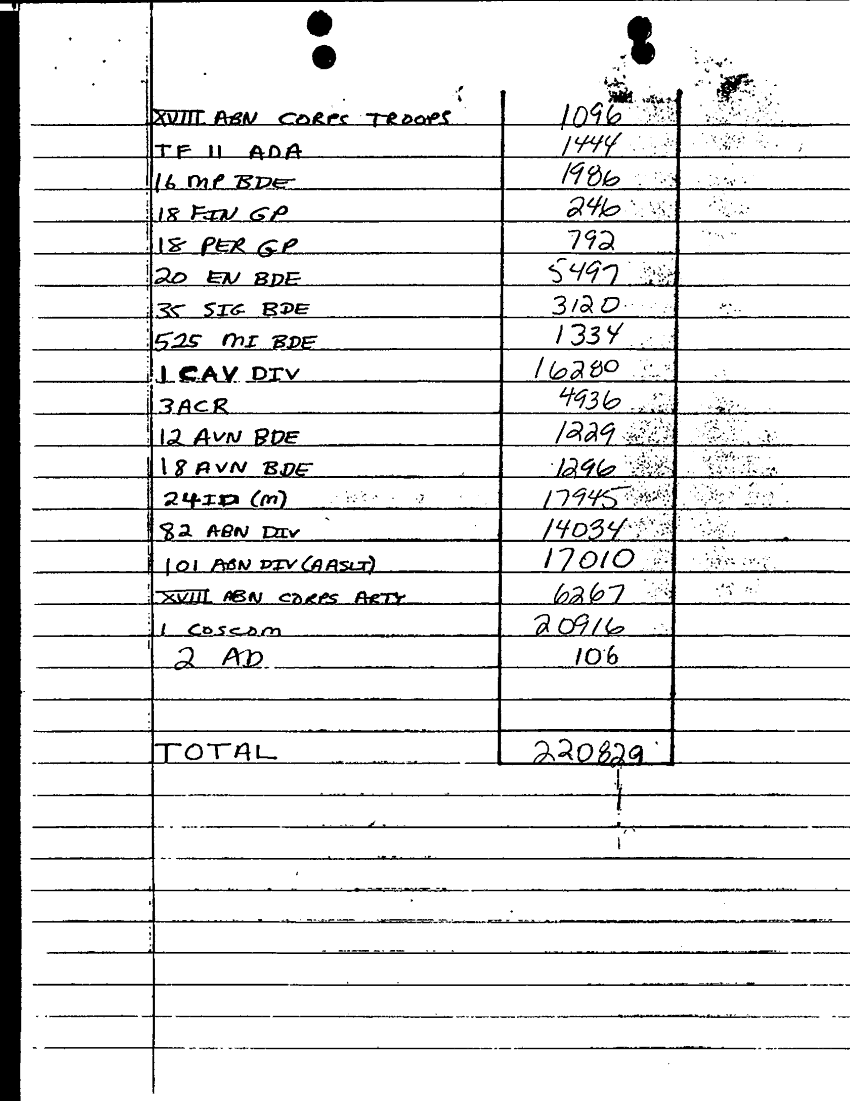 XVIII ABN CORPS TROOPS 1096
TF 11 ADA 1444
16 MP BDE 1986
18 FIN GP 246
18 PER GP 792
20 EN BDE 5497
35 SIG BDE 3120
525 MI BDE 1334
1 CAV DIV 16280
3ACR 4936
12 AVN BDE 1229
18 AVN BDE 1296
24ID (M) 17945
82 ABN DIV 14034
101 ABN DIV (AASLT) 17010
XVIII ABN CORPS ARTY 6267
1 COSCOM 20916
2 AD 106
TOTAL 220829